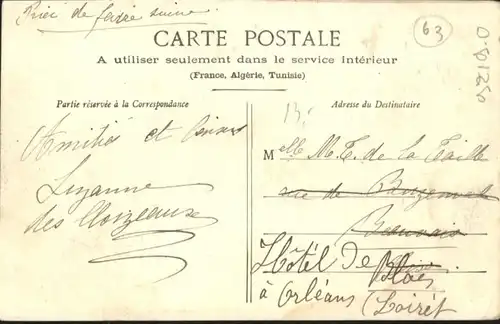 Prière de faire suivre
63
0.81250
CARTE POSTALE
A utiliser seulement dans le service intérieur
(France, Algérie, Tunisie)
Partie réservée à la Correspondance
Adresse du Destinataire
Amitiés et
Suzanne
des
Melle M. T. de la Taille
rue de
Beauvais
Hôtel De
à Orléans (Loiret)